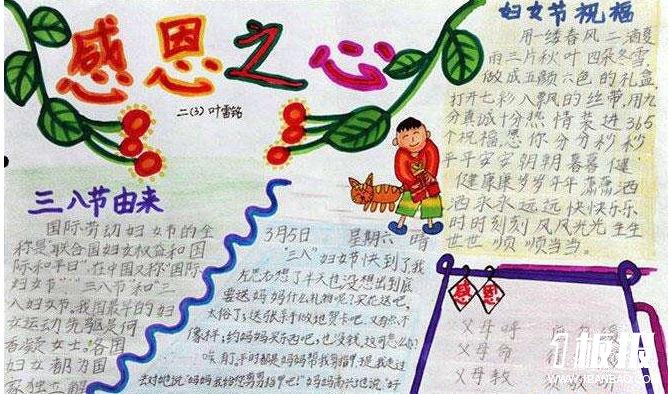 感恩之心
二(3) 叶雷铭
妇女节祝福
用一缕春风二滴夏
雨三片秋叶四朵冬雪
做成五颜六色的礼盒
打开七彩八飘的丝带,用九
分真诚十分热情装进365
个祝福,愿你分分秒秒
平平安安朝朝喜喜健
健康康岁岁年年潇潇洒
洒永永远远快快乐乐
时时刻刻风风光光生生
世世顺顺当当。
三八节由来
国际劳动妇女节的全
称是"联合国妇女权益和国
际和平日".在中国又称"国际
妇女节""三八节"和"三
八妇女节",我国最早的妇
女运动先驱是何
香凝女士,各国
妇女都为国
家独立解
3月5日 星期六 晴
"三八"妇女节快到了我
左思右想了半天也没想出到底
要送妈妈什么礼物呢?买花送吧,
太俗了;送张手做地贺卡吧,又有点不
像样;约妈妈买东西吧,也没钱,这可怎么办?
唉,有了,平时都是妈妈帮我剪指甲,
去对她说:"妈妈,我给您剪剪指甲吧!"妈妈高兴地说:"好
感恩
父母呼
父母命
父母教
板报
WWW.1BANBAO.COM